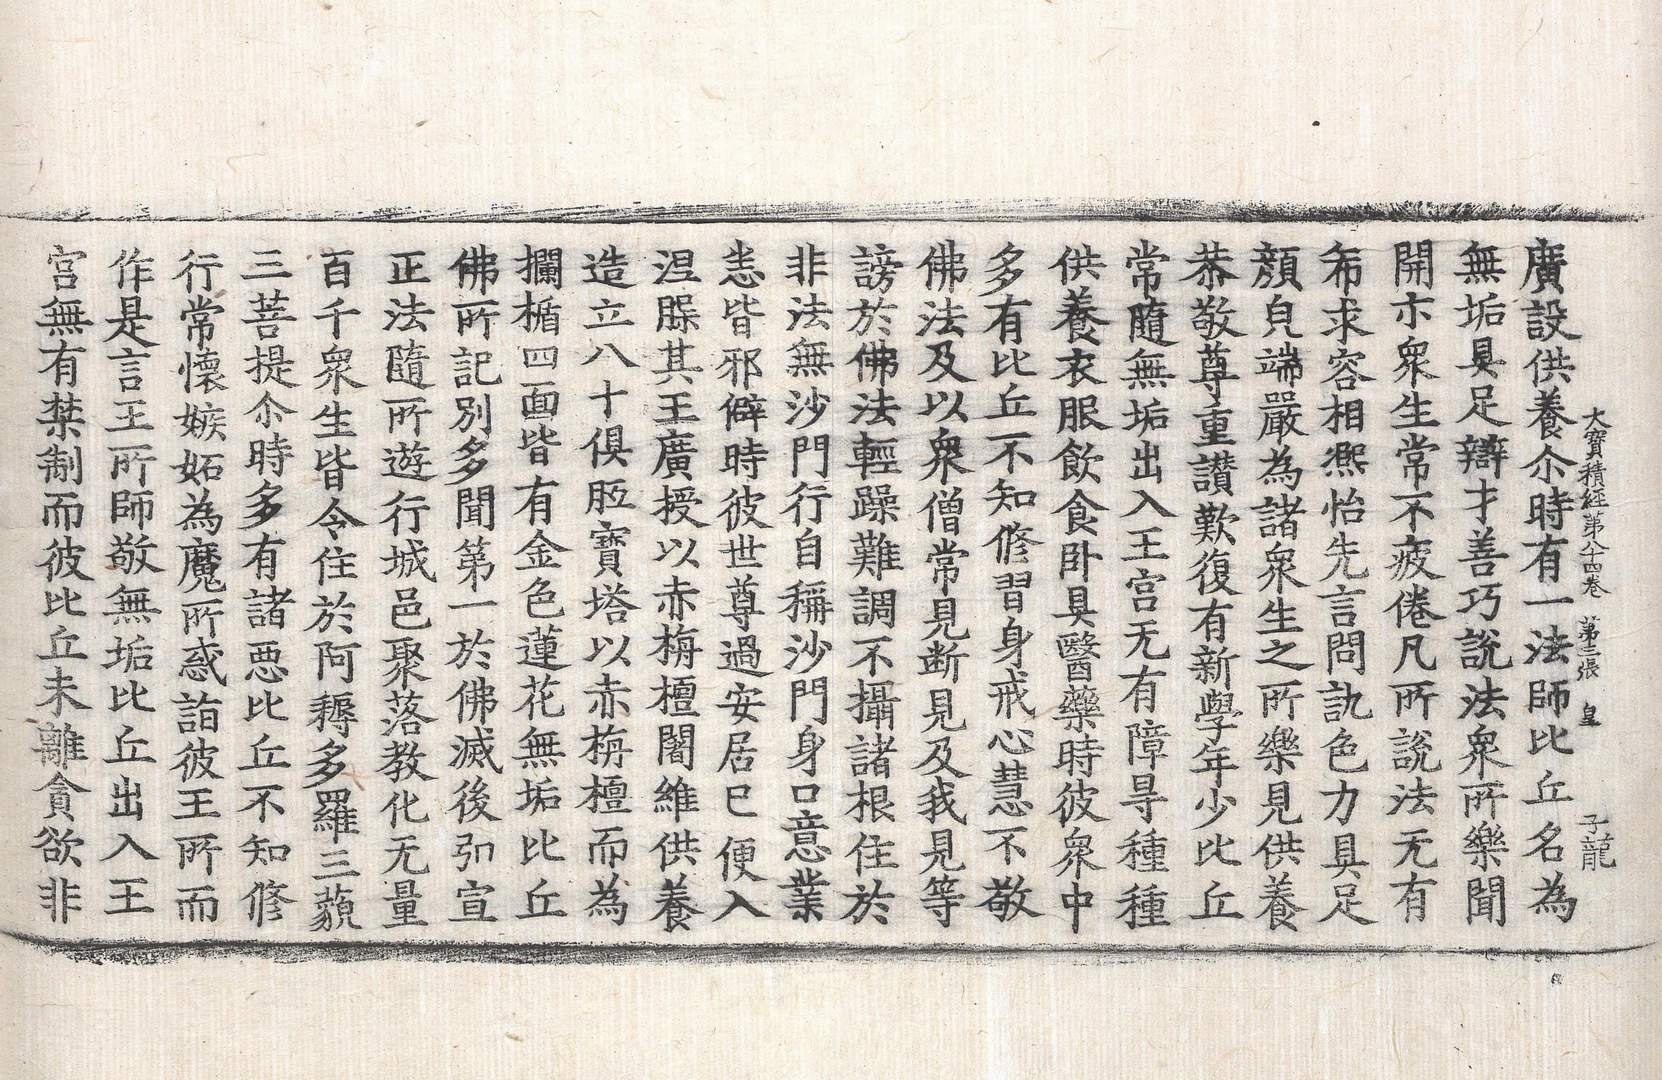 大寶積經第八十四卷 第三張 皇 子龍
廣設供養尒時有一法師比丘名為
無垢具足辯才善巧說法眾所樂聞
開示眾生常不疲倦凡所說法无有
希求容相熈怡先言問訊色力具足
顏皃端嚴為諸眾生之所樂見供養
恭敬尊重讚歎復有新學年少比丘
常隨無垢出入王宮无有障㝵種種
供養衣服飲食卧具醫藥時彼眾中
多有比丘不知修習身戒心慧不敬
佛法及以眾僧常見断見及我見等
謗於佛法輕躁難調不攝諸根住於
非法無沙門行自稱沙門身口意業
悉皆邪僻時彼世尊過安居已便入
涅槃其王廣授以赤栴檀闍維供養
造立八十俱胝寶塔以赤栴檀而為
攔楯四面皆有金色蓮花無垢比丘
佛所記別多聞第一於佛滅後弘宣
正法隨所遊行城邑聚落教化无量
百千眾生皆令住於阿耨多羅三藐
三菩提尒時多有諸惡比丘不知修
行常懷嫉妬為魔所惑詣彼王所而
作是言王所師敬無垢比丘出入王
宮無有禁制而彼比丘未離貪欲非